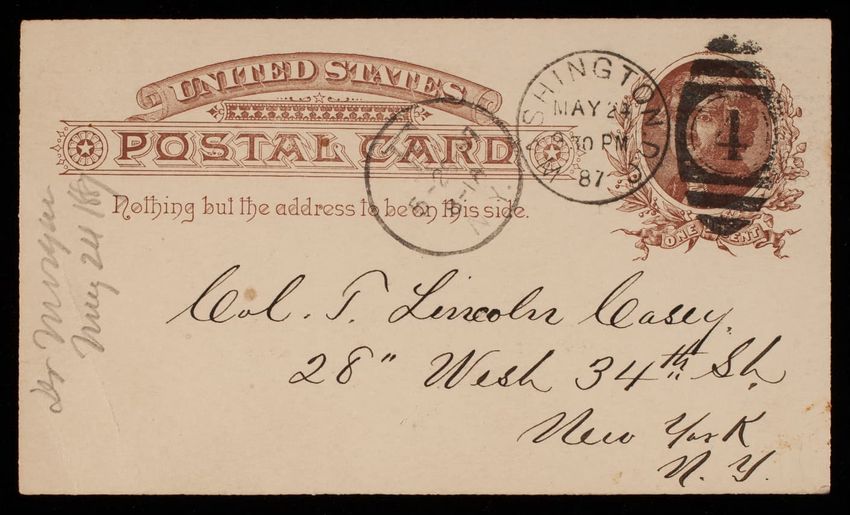 UNITED STATES
POSTAL CARD
Nothing but the address to be on this side.
WASHINGTON D.C.
MAY 24
30 PM
87
4
ONE CENT
N.Y.
Col. T. Lincoln Casey.
28" West 34th St.
New York
N.Y.
Dr Morgan
May 24 1887